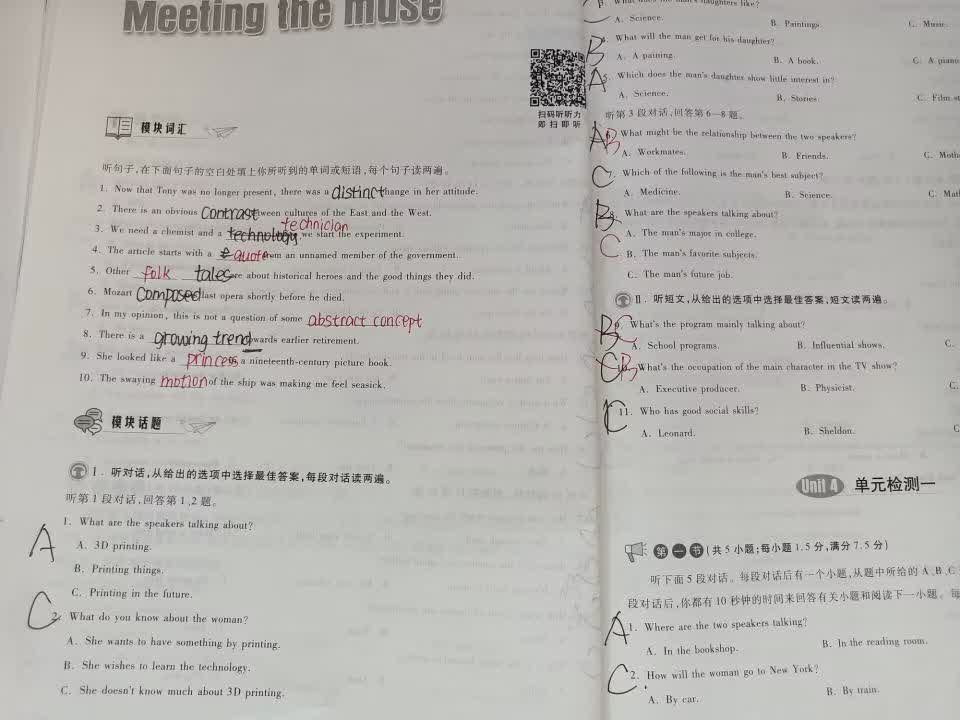 Meeting the muse
扫码听听力
即扫即听
模块词汇
听句子,在下面句子的空白处填上你所听到的单词或短语,每个句子读两遍。
1. Now that Tony was no longer present, there was a distinct hange in her attitude.
2. There is an obvious contrast tween cultures of the East and the West.
technician
3. We need a chemist and a technology we start the experiment.
4. The article starts with a quote om an unnamed member of the government.
5. Other folk tales re about historical heroes and the good things they did.
6. Mozart composed last opera shortly before he died.
7. In my opinion, this is not a question of some abstract concept
8. There is a growing trend owards earlier retirement.
9. She looked like a princess a nineteenth-century picture book.
10. The swaying motion of the ship was making me feel seasick.
模块话题
Ⅰ. 听对话,从给出的选项中选择最佳答案,每段对话读两遍。
听第1段对话,回答第1、2题。
1. What are the speakers talking about?
A
A. 3D printing.
B. Printing things.
C. Printing in the future.
C 2. What do you know about the woman?
A. She wants to have something by printing.
B. She wishes to learn the technology.
C. She doesn't know much about 3D printing.
daughters like?
A. Science. B. Paintings. C. Music.
B 4. What will the man get for his daughter?
A. A paining. B. A book. C. A piano
A 5. Which does the man's daughter show little interest in?
A. Science. B. Stories. C. Film st
听第3段对话,回答第6—8题。
A B 6. What might be the relationship between the two speakers?
A. Workmates. B. Friends. C. Moth
C 7. Which of the following is the man's best subject?
A. Medicine. B. Science. C. Mat
B 8. What are the speakers talking about?
A. The man's major in college.
C B. The man's favorite subjects.
C. The man's future job.
Ⅱ. 听短文,从给出的选项中选择最佳答案,短文读两遍。
B C 9. What's the program mainly talking about?
A. School programs. B. Influential shows. C.
C B 10. What's the occupation of the main character in the TV show?
A. Executive producer. B. Physicist. C.
C 11. Who has good social skills?
A. Leonard. B. Sheldon. C
Unit 4 单元检测一
第一节 (共5小题;每小题1.5分,满分7.5分)
听下面5段对话。每段对话后有一个小题,从题中所给的A、B、C
段对话后,你都有10秒钟的时间来回答有关小题和阅读下一小题。每
A 1. Where are the two speakers talking?
A. In the bookshop. B. In the reading room.
C 2. How will the woman go to New York?
A. By car. B. By train.